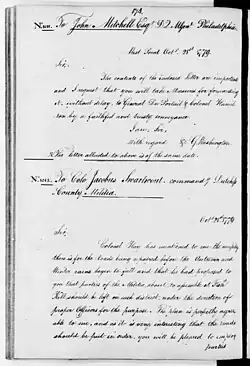 To John Mitchell Esqr D.Q. Mr Genl Philadelphia
West Point Octr 21st 1779
Sir,
The contents of the inclosed letter are important
and I request that you will take Measures for forwarding
it, without delay, to General Du Portail & Colonel Hamil-
ton by a faithful and trusty conveyance.
I am, Sir,
With regard & G Washington
letter alluded to above is of the same date.
To Colo Jacobus Swartwout command'g Dutchess
County Militia.
Octr 21st 1779
Sir,
Colonel Hay has mentioned to me the employ
them is for the roads being repaired before the Autumn and
Winter rains begin to fall and that he had proposed to
you that parties of the Militia about to assemble at Fish
Kill should be left in each district, under the direction of
proper Officers for the purpose. The plan is perfectly agree
able to me, and as it is very interesting that the roads
should be put in order, you will be pleased to employ
parties